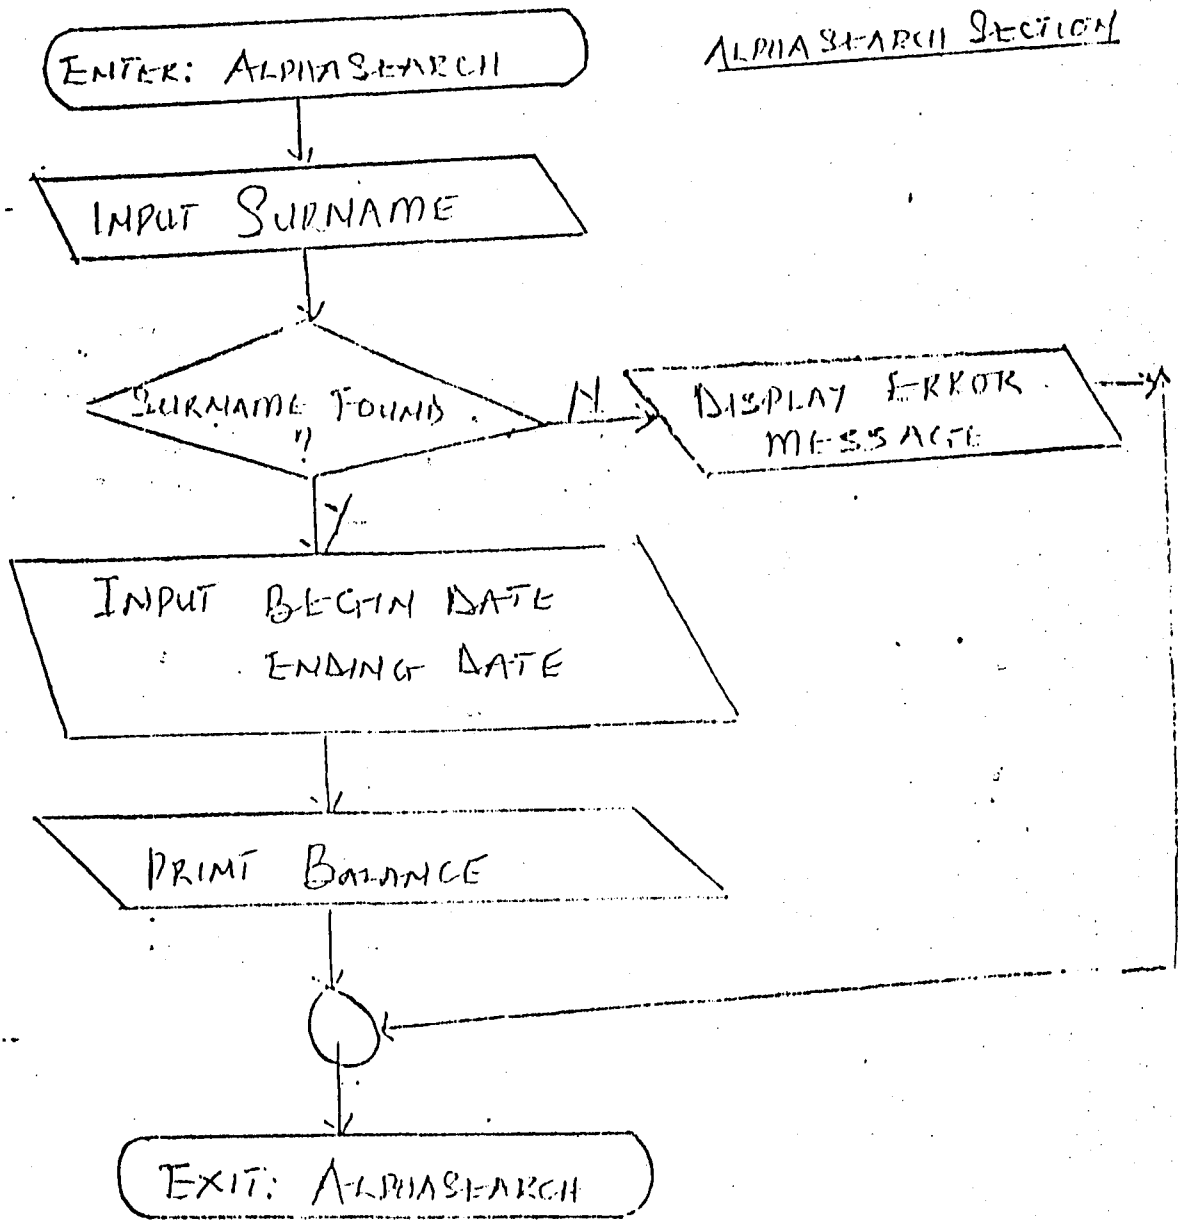 ALPHASEARCH SECTION
ENTER: ALPHASEARCH
INPUT SURNAME
SURNAME FOUND
?
N
DISPLAY ERROR
MESSAGE
Y
INPUT BEGIN DATE
ENDING DATE
PRINT BALANCE
EXIT: ALPHASEARCH